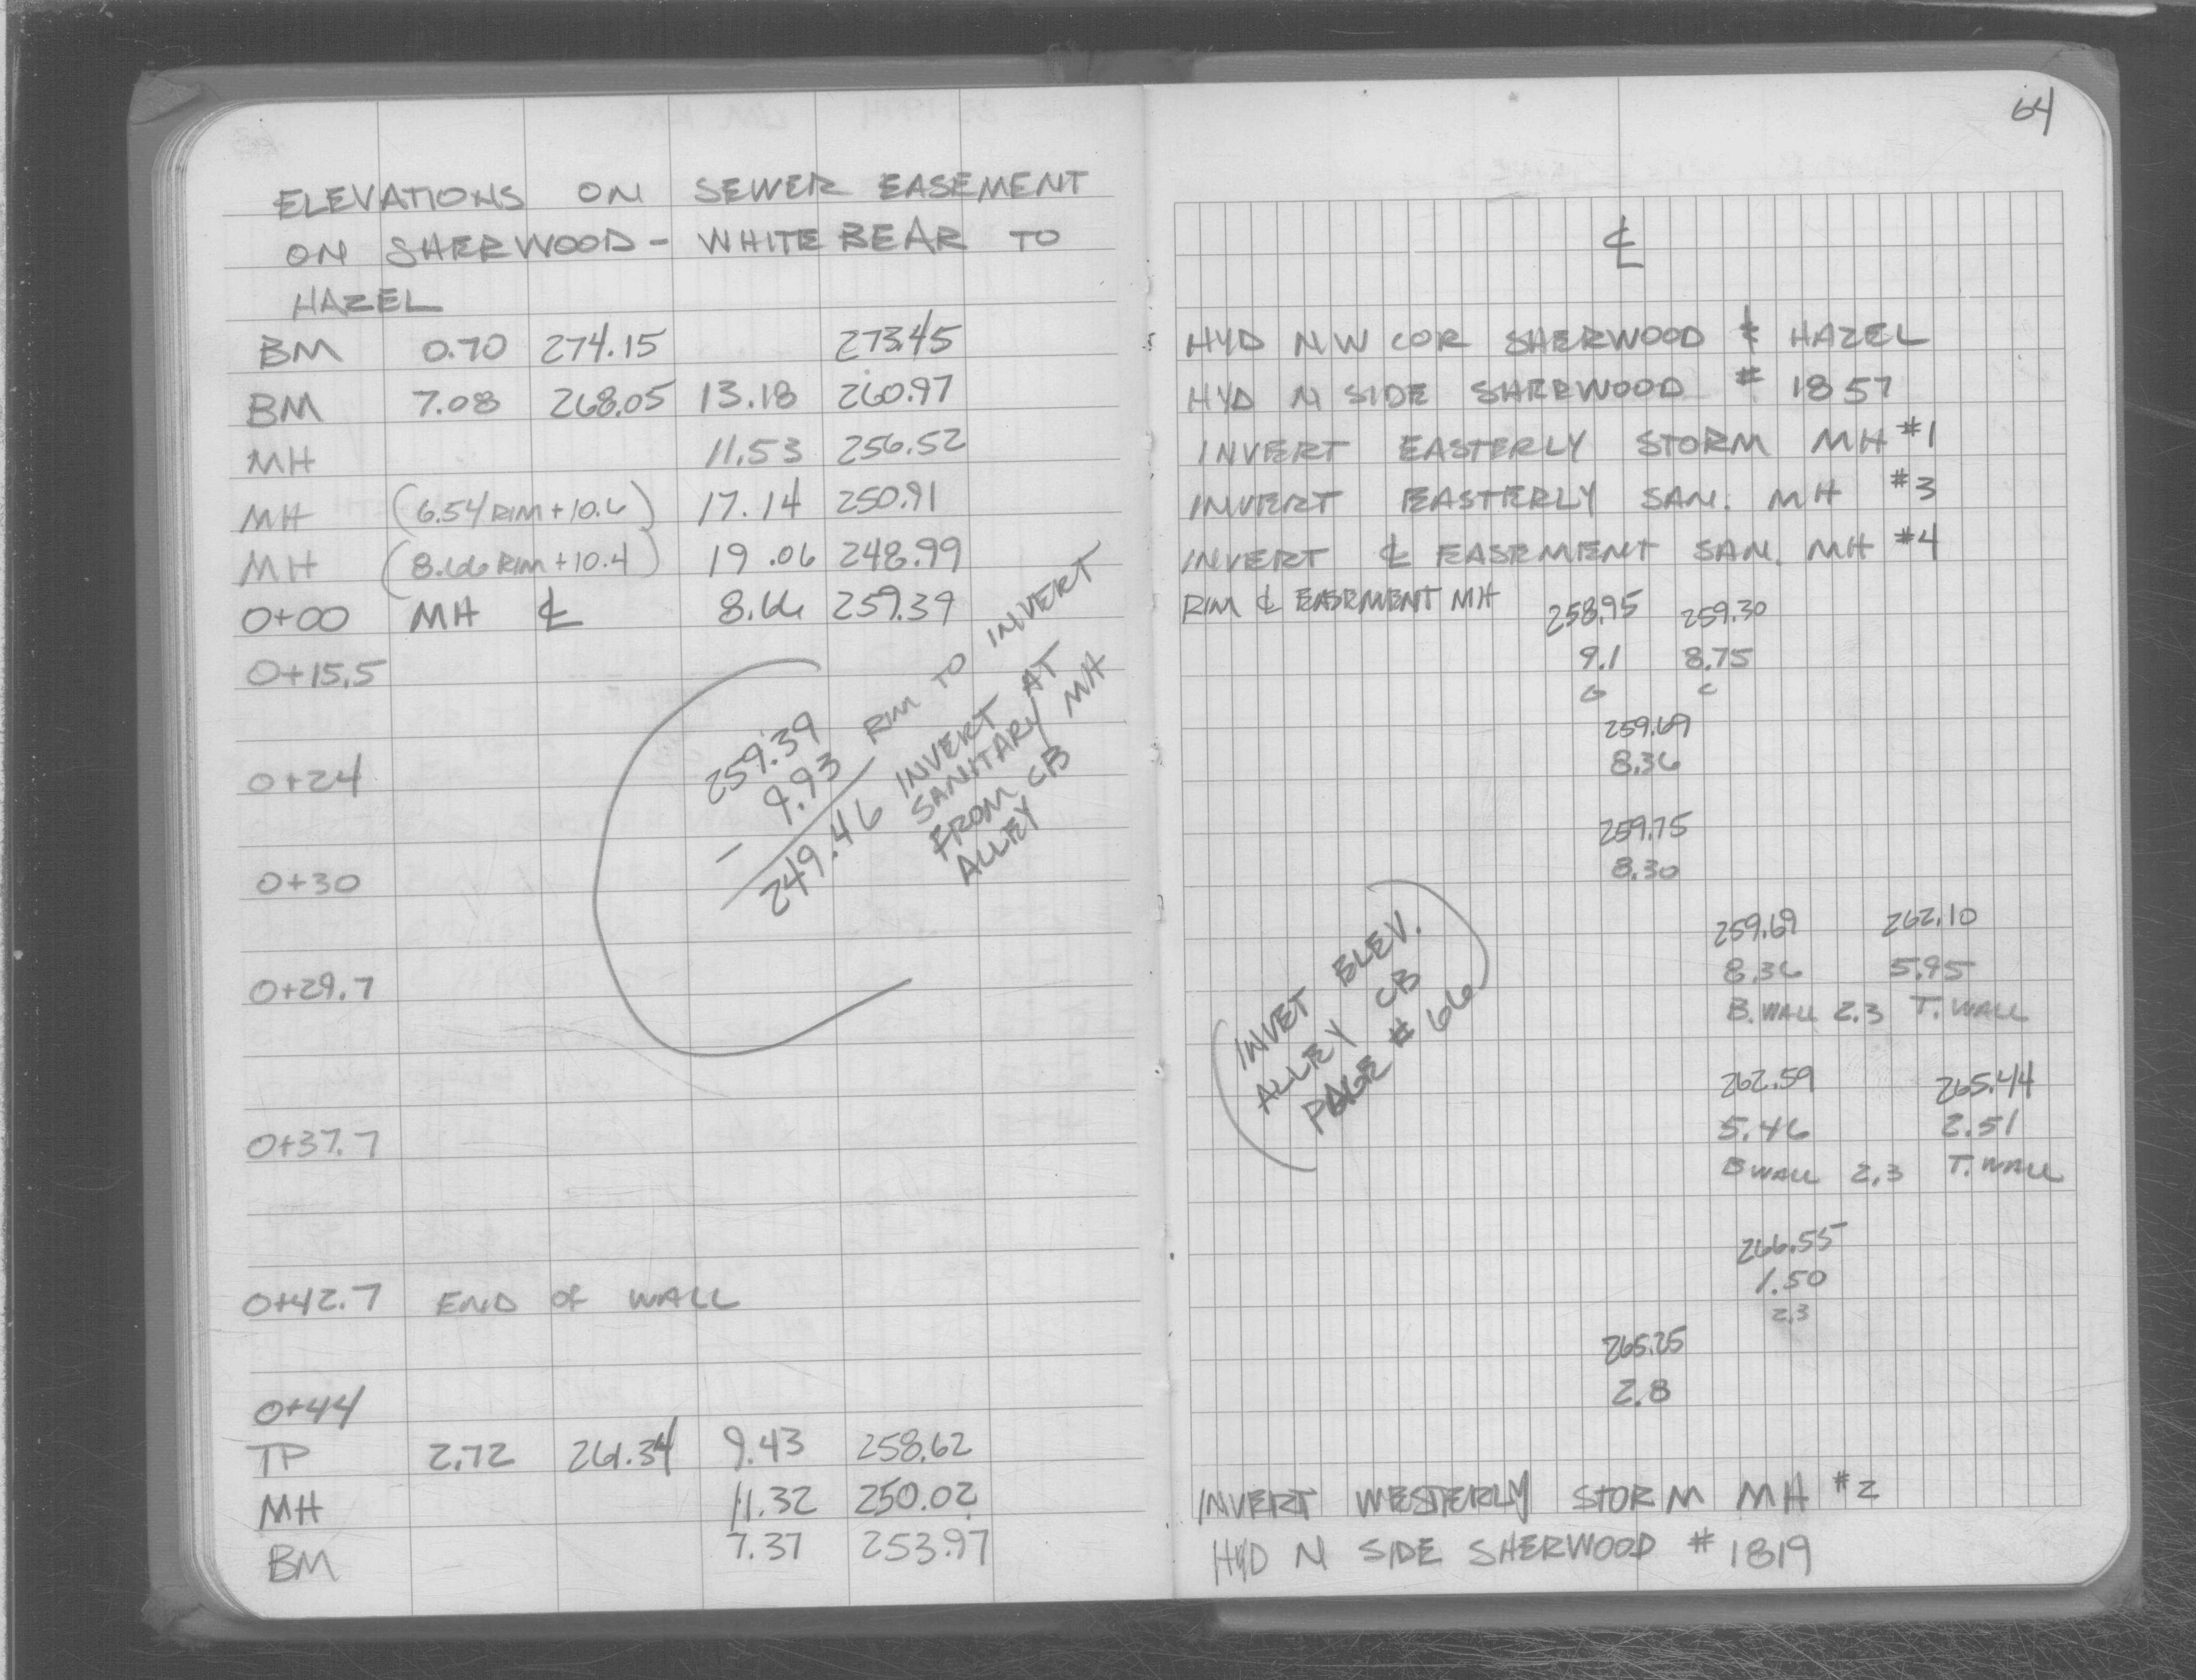 64
ELEVATIONS ON SEWER EASEMENT
ON SHERWOOD - WHITE BEAR TO
HAZEL
BM 0.70 274.15 273.45
BM 7.08 268.05 13.18 260.97
MH 11.53 256.52
MH (6.54 RIM + 10.6) 17.14 250.91
MH (8.66 RIM + 10.4) 19.06 248.99
0+00 MH ℄ 8.66 259.39
0+15.5
0+24
0+30
0+29.7
0+37.7
0+42.7 END OF WALL
0+44
TP 2.72 261.34 9.43 258.62
MH 11.32 250.02
BM 7.37 253.97
259.39
- 9.93 RIM TO INVERT
249.46 INVERT AT
SANITARY MH
FROM CB
ALLEY
℄
HYD NW COR SHERWOOD & HAZEL
HYD N SIDE SHERWOOD # 1857
INVERT EASTERLY STORM MH #1
INVERT EASTERLY SAN. MH #3
INVERT ℄ EASEMENT SAN. MH #4
RIM ℄ EASEMENT MH 258.95 259.30
9.1 8.75
G C
259.69
8.36
259.75
8.30
259.69 262.10
8.36 5.95
B. WALL 2.3 T. WALL
262.59 265.44
5.46 2.51
B WALL 2.3 T. WALL
266.55
1.50
2.3
265.25
2.8
INVERT WESTERLY STORM MH #2
HYD N SIDE SHERWOOD # 1819
INVET ELEV.
ALLEY CB
PAGE # 66